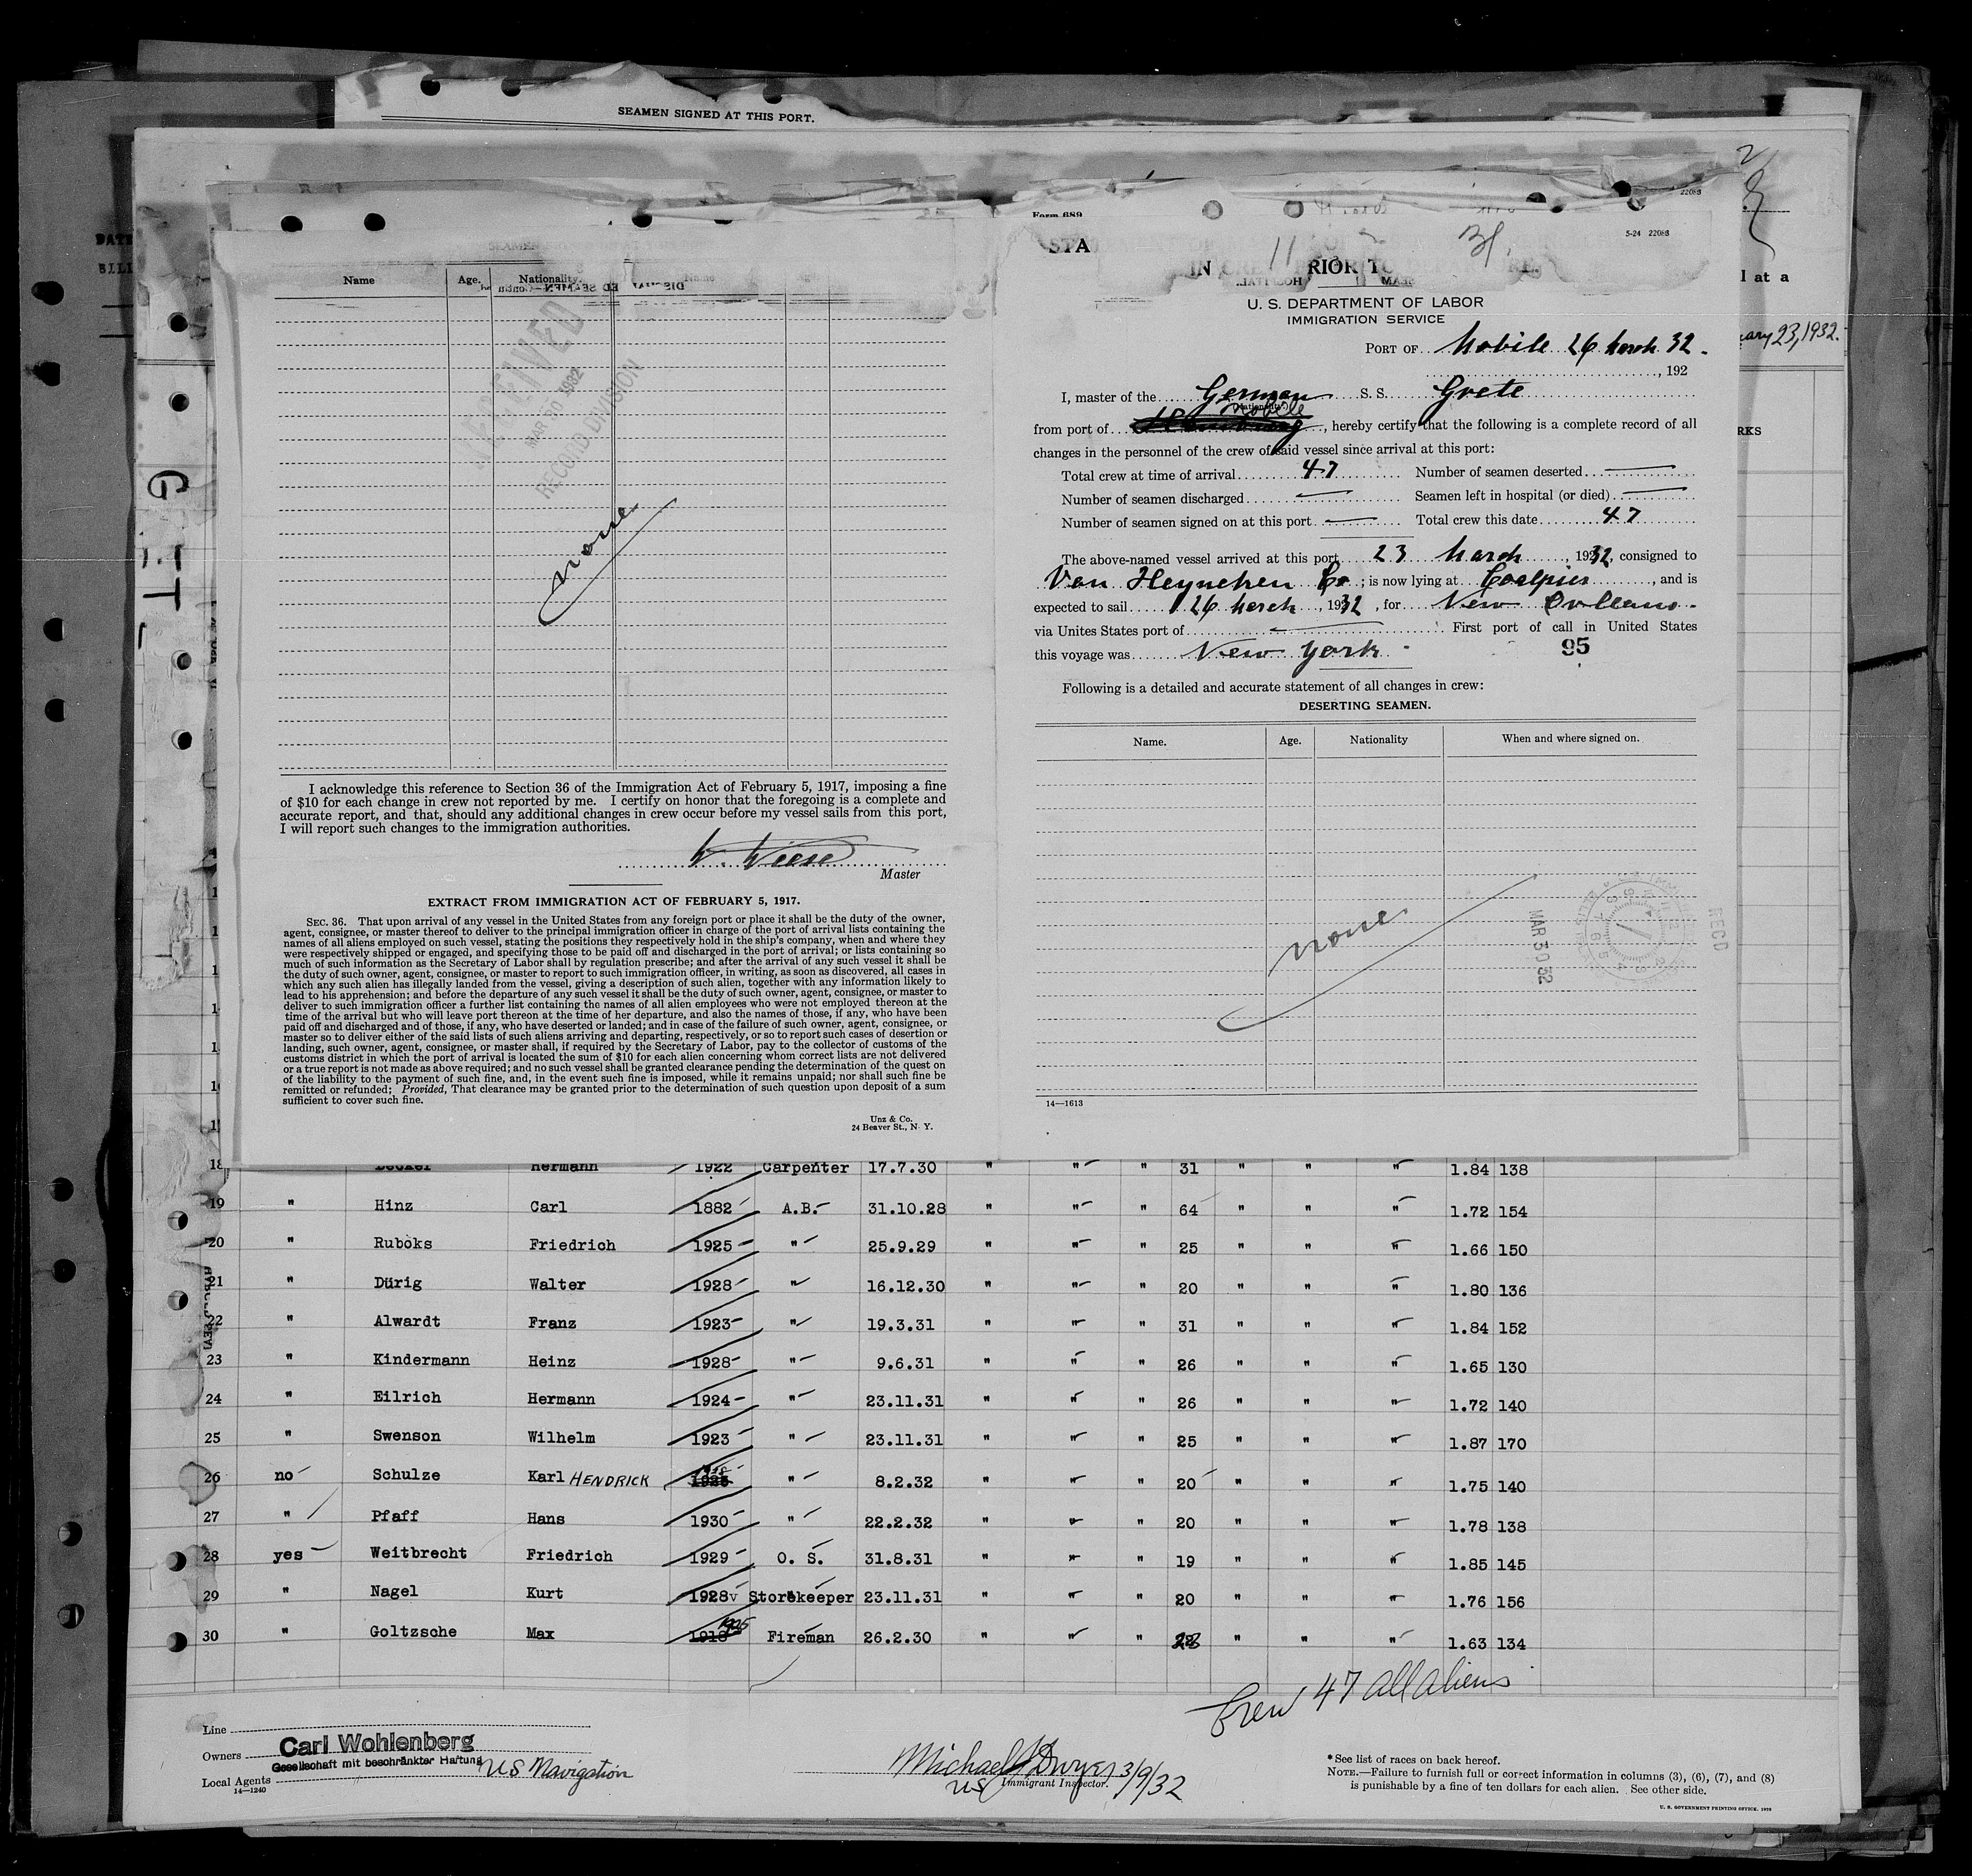 SEAMEN SIGNED AT THIS PORT.
22088
Form 689
5-24 22088
STA
11
IN CRE PRIOR T RE.
U. S. DEPARTMENT OF LABOR
IMMIGRATION SERVICE
PORT OF Mobile 26 March 32.
, 192
I, master of the German S. S. Grete
(Nationality)
Mobile
from port of , hereby certify that the following is a complete record of all
changes in the personnel of the crew of said vessel since arrival at this port:
Total crew at time of arrival 47 Number of seamen deserted —
Number of seamen discharged — Seamen left in hospital (or died) —
Number of seamen signed on at this port — Total crew this date 47
The above-named vessel arrived at this port 23 March, 1932, consigned to
Van Heynehen Co; is now lying at Coalpier, and is
expected to sail 26 March, 1932, for New Orlleans.
via Unites States port of — First port of call in United States
this voyage was New York.
95
Following is a detailed and accurate statement of all changes in crew:
DESERTING SEAMEN.
Name. Age. Nationality When and where signed on.
none
MAR 30 32
REC'D
14—1613
Name Age. Nationality. Name
RECEIVED
MAR 30 1932
RECORD DIVISION
none
I acknowledge this reference to Section 36 of the Immigration Act of February 5, 1917, imposing a fine
of $10 for each change in crew not reported by me. I certify on honor that the foregoing is a complete and
accurate report, and that, should any additional changes in crew occur before my vessel sails from this port,
I will report such changes to the immigration authorities.
W. Wiese
Master
EXTRACT FROM IMMIGRATION ACT OF FEBRUARY 5, 1917.
SEC. 36. That upon arrival of any vessel in the United States from any foreign port or place it shall be the duty of the owner,
agent, consignee, or master thereof to deliver to the principal immigration officer in charge of the port of arrival lists containing the
names of all aliens employed on such vessel, stating the positions they respectively hold in the ship's company, when and where they
were respectively shipped or engaged, and specifying those to be paid off and discharged in the port of arrival; or lists containing so
much of such information as the Secretary of Labor shall by regulation prescribe; and after the arrival of any such vessel it shall be
the duty of such owner, agent, consignee, or master to report to such immigration officer, in writing, as soon as discovered, all cases in
which any such alien has illegally landed from the vessel, giving a description of such alien, together with any information likely to
lead to his apprehension; and before the departure of any such vessel it shall be the duty of such owner, agent, consignee, or master to
deliver to such immigration officer a further list containing the names of all alien employees who were not employed thereon at the
time of the arrival but who will leave port thereon at the time of her departure, and also the names of those, if any, who have been
paid off and discharged and of those, if any, who have deserted or landed; and in case of the failure of such owner, agent, consignee, or
master so to deliver either of the said lists of such aliens arriving and departing, respectively, or so to report such cases of desertion or
landing, such owner, agent, consignee, or master shall, if required by the Secretary of Labor, pay to the collector of customs of the
customs district in which the port of arrival is located the sum of $10 for each alien concerning whom correct lists are not delivered
or a true report is not made as above required; and no such vessel shall be granted clearance pending the determination of the quest on
of the liability to the payment of such fine, and, in the event such fine is imposed, while it remains unpaid; nor shall such fine be
remitted or refunded; Provided, That clearance may be granted prior to the determination of such question upon deposit of a sum
sufficient to cover such fine.
Unz & Co.
24 Beaver St., N. Y.
l at a
uary 23, 1932.
RKS
18 Hermann 1922 Carpenter 17.7.30 " " " 31 " " " 1.84 138
19 " Hinz Carl 1882 A.B. 31.10.28 " " " 64 " " " 1.72 154
20 " Ruboks Friedrich 1925 " 25.9.29 " " " 25 " " " 1.66 150
21 " Dürig Walter 1928 " 16.12.30 " " " 20 " " " 1.80 136
22 " Alwardt Franz 1923 " 19.3.31 " " " 31 " " " 1.84 152
23 " Kindermann Heinz 1928 " 9.6.31 " " " 26 " " " 1.65 130
24 " Eilrich Hermann 1924 " 23.11.31 " " " 26 " " " 1.72 140
25 " Swenson Wilhelm 1923 " 23.11.31 " " " 25 " " " 1.87 170
26 no Schulze Karl HENDRICK " 8.2.32 " " " 20 " " " 1.75 140
27 " Pfaff Hans 1930 " 22.2.32 " " " 20 " " " 1.78 138
28 yes Weitbrecht Friedrich 1929 O. S. 31.8.31 " " " 19 " " " 1.85 145
29 " Nagel Kurt 1928 Storekeeper 23.11.31 " " " 20 " " " 1.76 156
30 " Goltzsche Max Fireman 26.2.30 " " " 28 " " " 1.63 134
Crew 47 all aliens
Line
Owners Carl Wohlenberg
Gesellschaft mit beschränkter Haftung
Local Agents US Navigation
14—1240
Michael J Dwyer 3/9/32
US Immigrant Inspector.
* See list of races on back hereof.
NOTE.—Failure to furnish full or correct information in columns (3), (6), (7), and (8)
is punishable by a fine of ten dollars for each alien. See other side.
U. S. GOVERNMENT PRINTING OFFICE. 1929